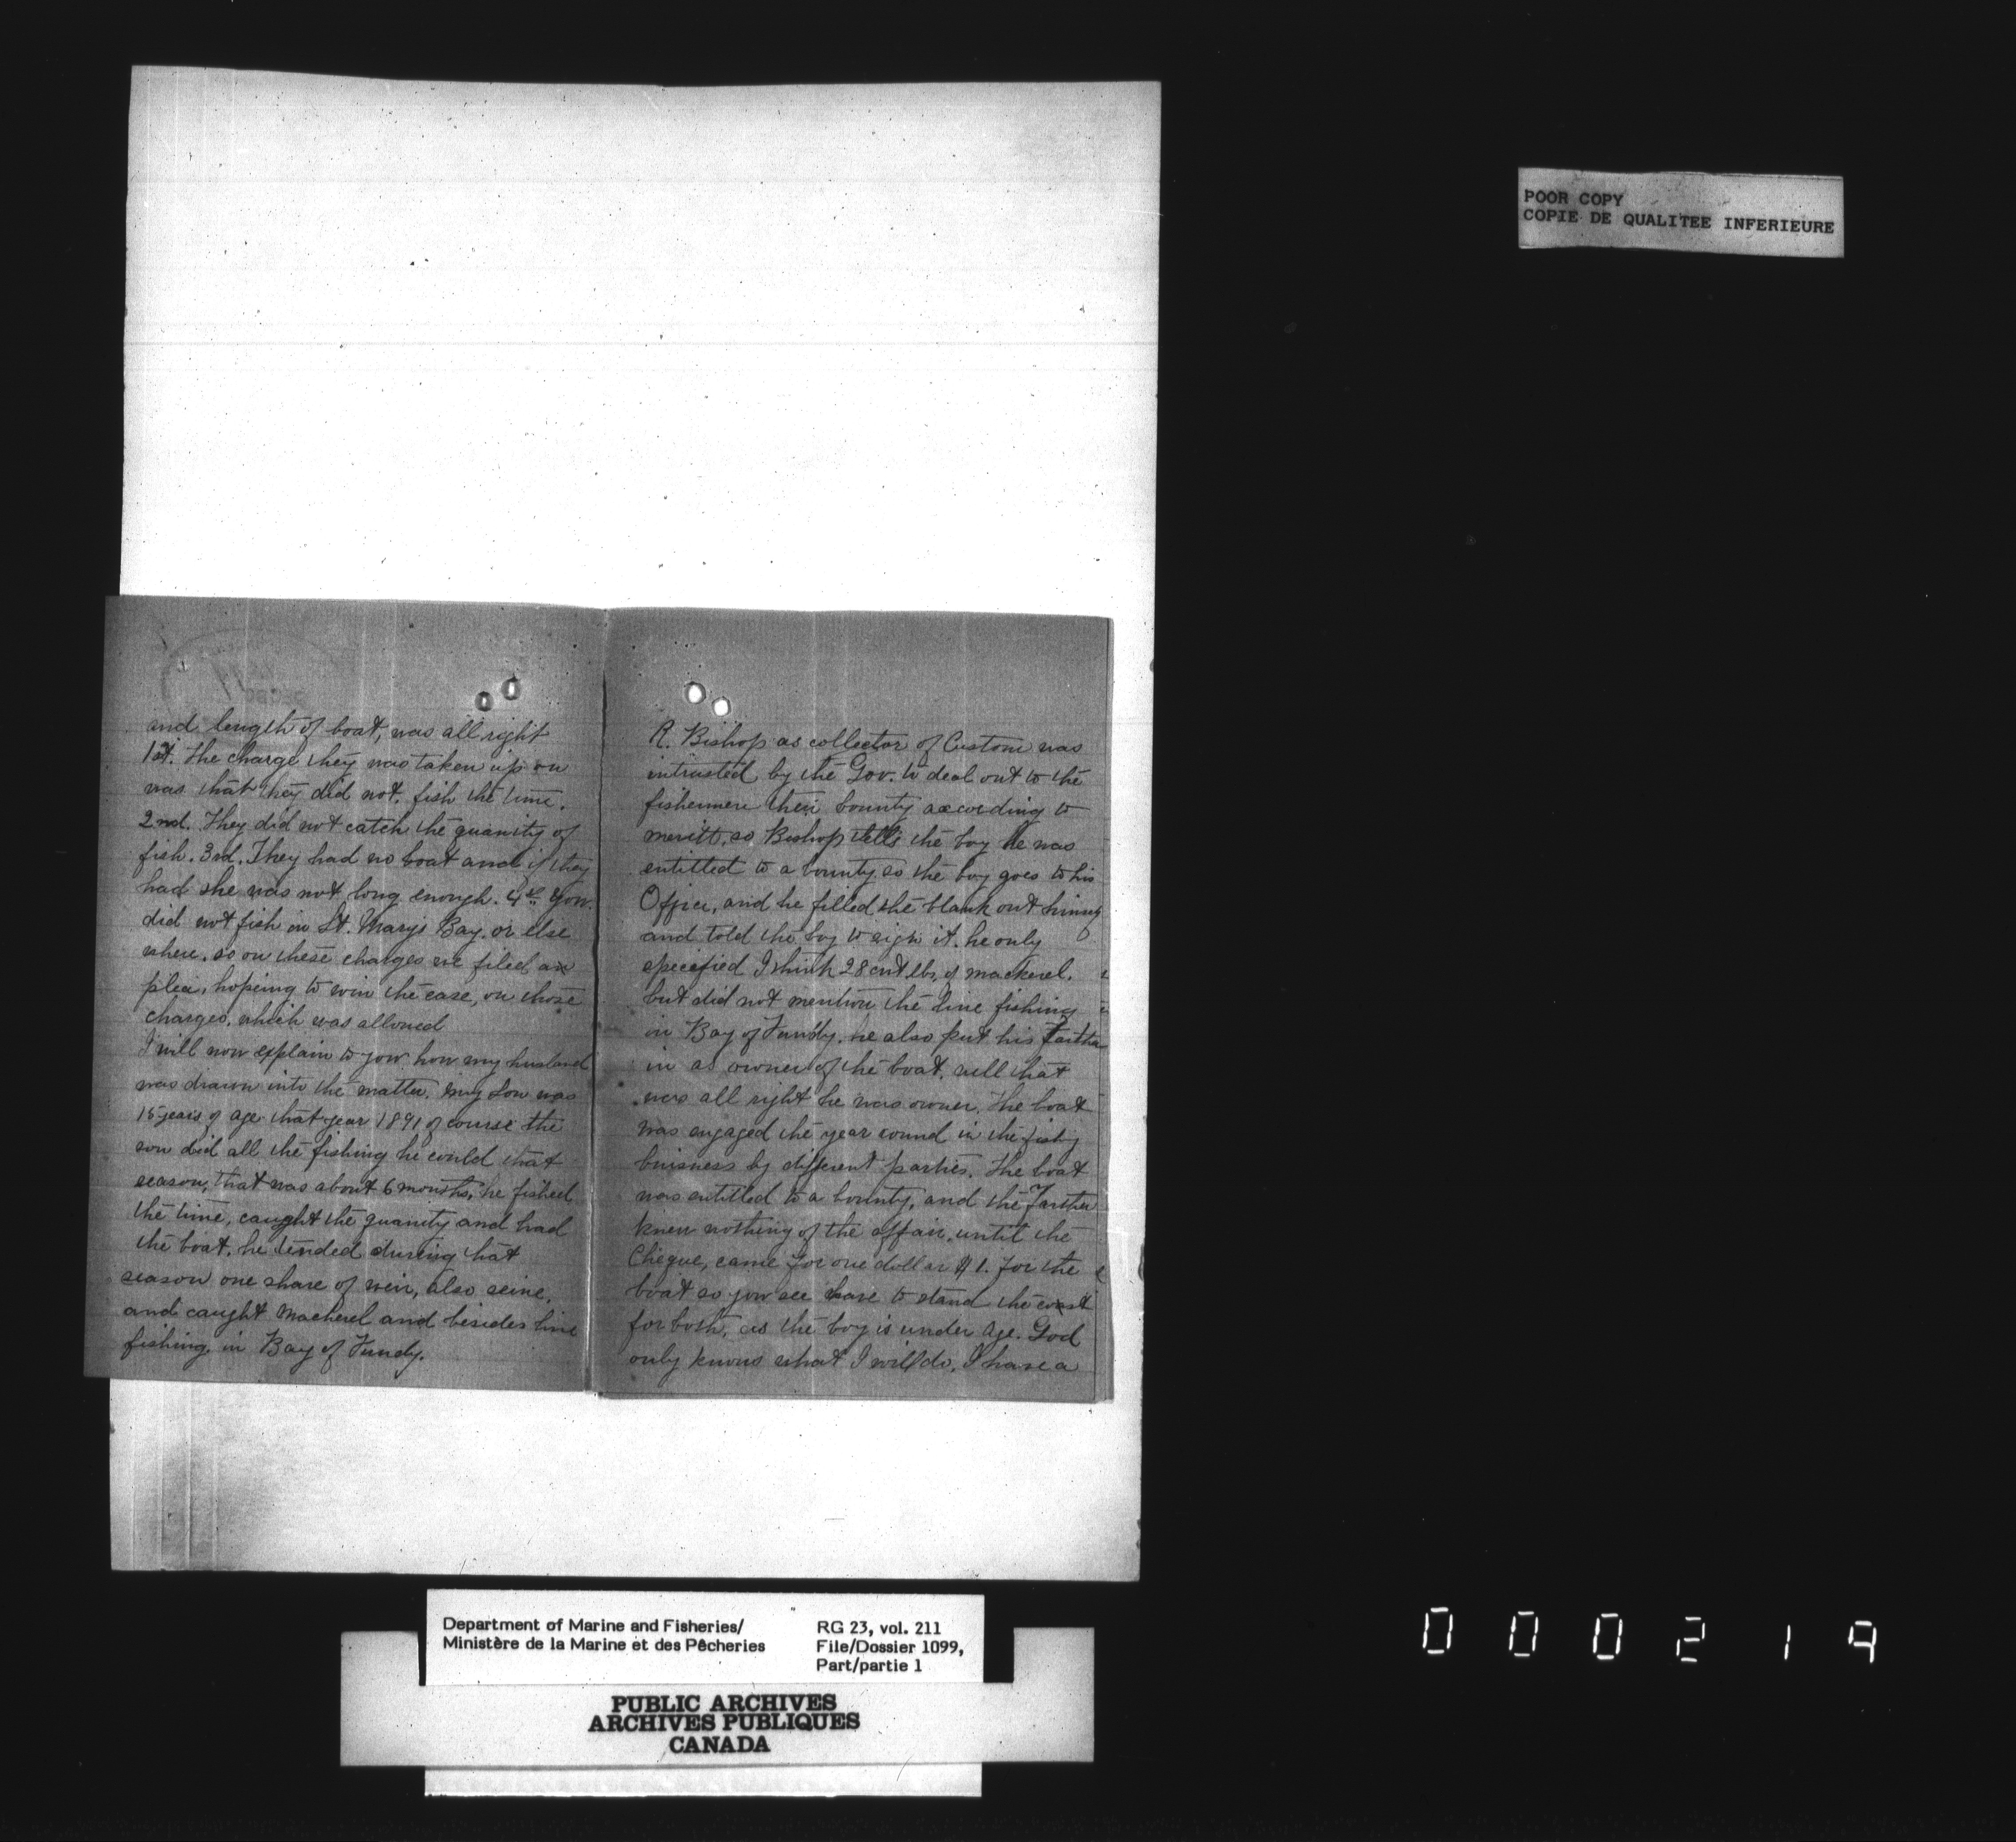 and length of boat, was all right
1st. The charge they was taken up on
was that they did not fish the time.
2nd. They did not catch the quanity of
fish. 3rd. They had no boat and if they
had she was not long enough. 4th You
did not fish in St. Marys Bay. or else
where. so on these charges we filed an
plea, hopeing to win the case, on those
charges, which was allowed
I will now explain to you how my husband
was drawn into the matter. my son was
15 years of age that year 1891 of course the
son did all the fishing he could that
season, that was about 6 mounths, he fished
the time, caught the quanity and had
the boat. he tended during that
season one share of weir, also seine,
and caught Mackerel and besides line
fishing, in Bay of Fundy.
R. Bishop as collector of Custom was
intrusted by the Gov. to deal out to the
fishermere their bounty aecording to
meritt, so Bishop tells the boy he was
entitled to a bounty. so the boy goes to his
Office, and he filled the blank out himself
and told the boy to sign it. he only
specefied I think 28 cwt lbs, of mackerel.
but did not mention the line fishing
in Bay of Fundy. he also put his Farther
in as owner of the boat. well that
was all right he was owner. The boat
was engaged the year round in the fishing
buisness by different parties. The boat
was entitled to a bounty, and the Farther
knew nothing of the affair, until the
Cheque, came for one dollar $1. for the
boat so you see have to stand the coast
for both, as the boy is under age. God
only knows what I will do, I have a
POOR COPY
COPIE DE QUALITEE INFERIEURE
Department of Marine and Fisheries/
Ministère de la Marine et des Pêcheries
RG 23, vol. 211
File/Dossier 1099,
Part/partie 1
PUBLIC ARCHIVES
ARCHIVES PUBLIQUES
CANADA
000219